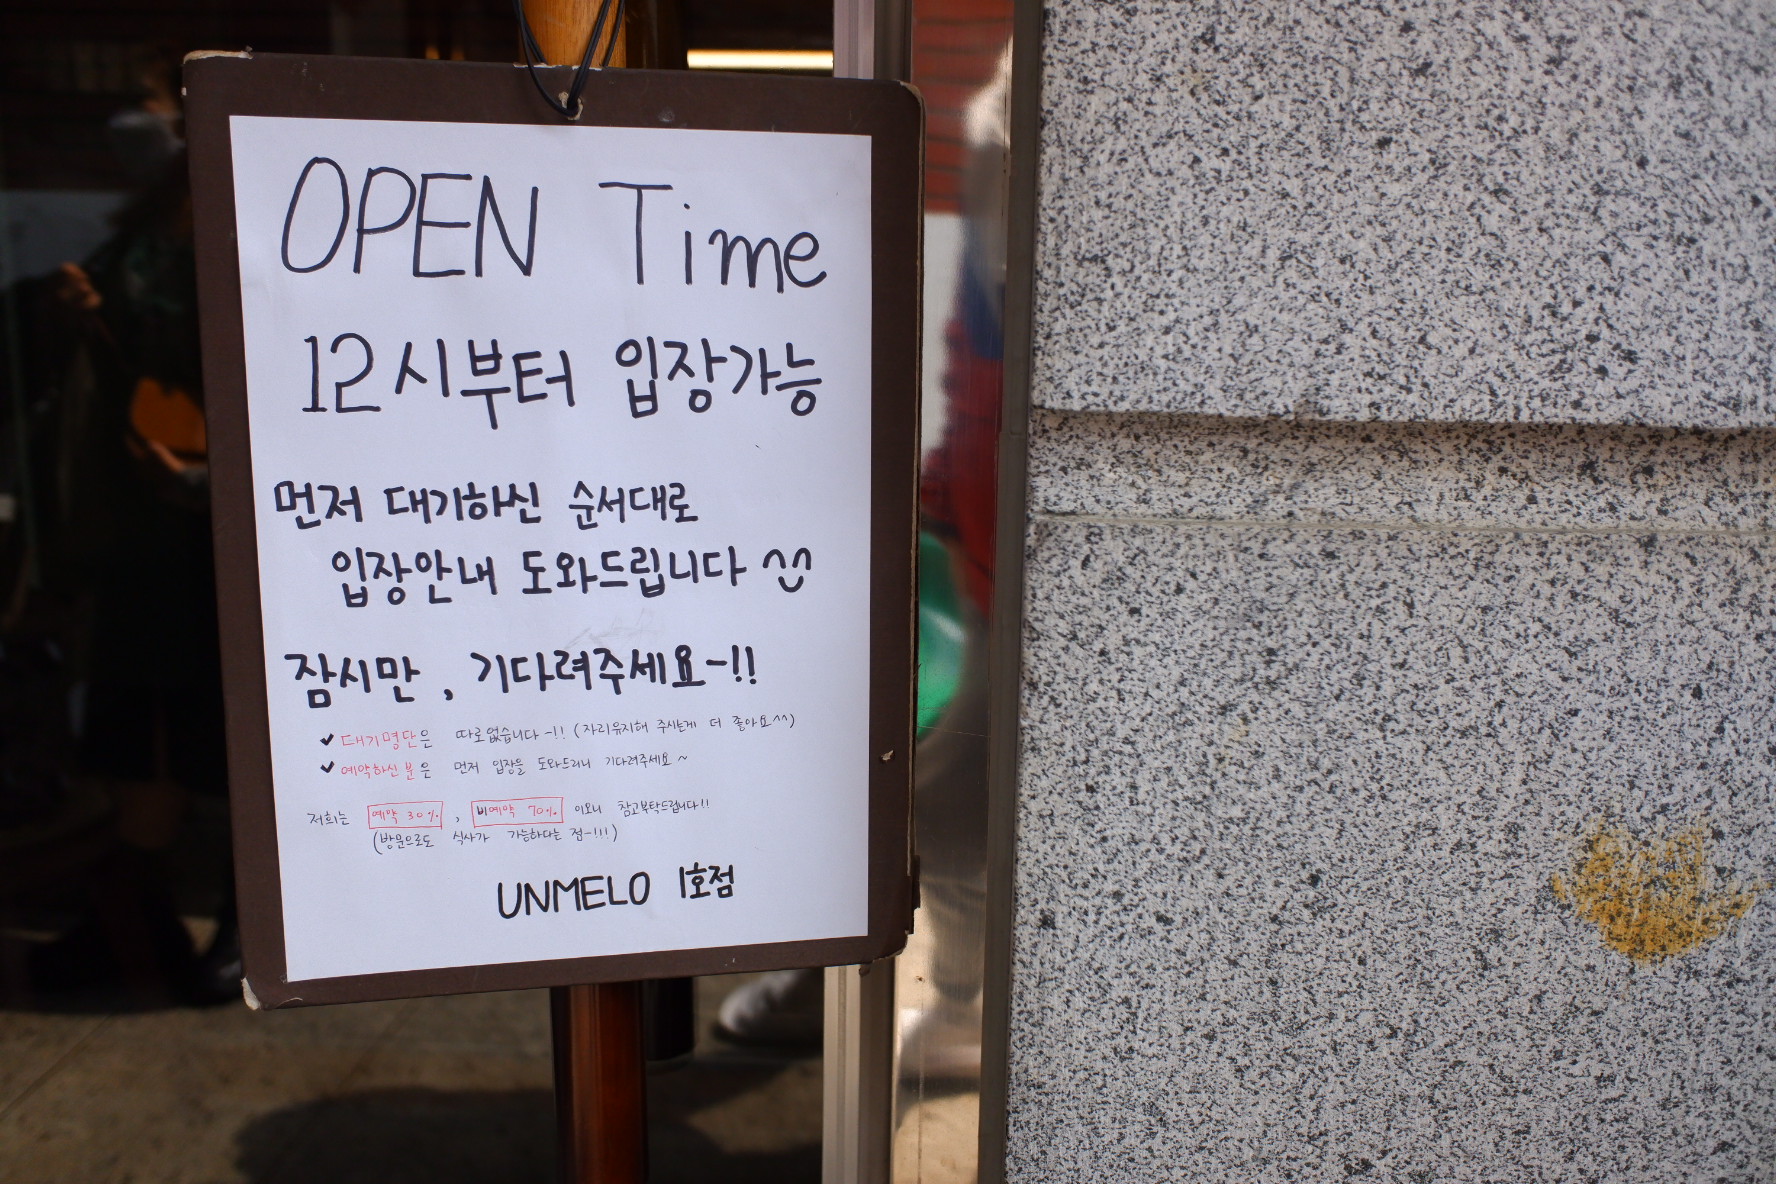 OPEN Time
12시부터 입장가능
먼저 대기하신 순서대로
입장안내 도와드립니다 ^^
잠시만, 기다려주세요-!!
✔ 대기명단은 따로없습니다-!! (자리유지해 주시는게 더 좋아요^^)
✔ 예약하신분은 먼저 입장을 도와드리니 기다려주세요~
저희는 예약 30%, 비예약 70% 이오니 참고부탁드립니다!!
(방문으로도 식사가 가능하다는 점-!!!)
UNMELO 1호점